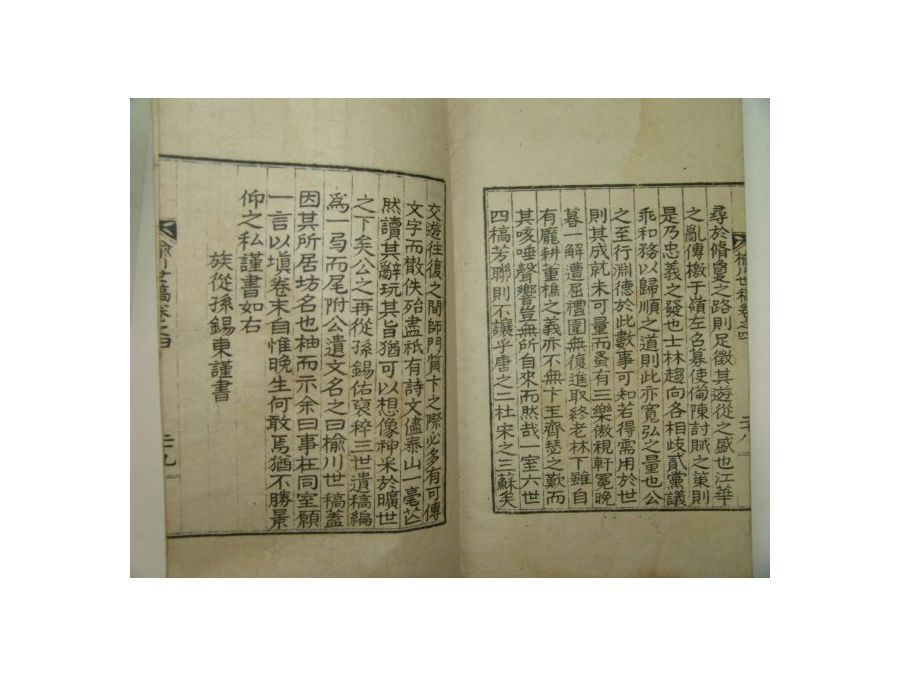 榆川世稿卷之四
二十八
尋於脩夐之路則足徵其遊從之盛也江華
之亂傳檄于嶺左召募使備陳討賊之策則
是乃忠義之發也士林趨向各相歧貳黨議
乖和務以歸順之道則此亦寬弘之量也公
之至行淵德於此數事可知若得需用於世
則其成就未可量而蚤有三樂傲梘軒冕晚
暮一解遭屈禮圍無復進取終老林下雖自
有龐耕董樵之義亦不無卞玉齊瑟之歎而
其咳唾聲響豈無所自來而然哉一室六世
四稿芳聯則不讓乎唐之二杜宋之三蘇矣
交遊往復之間師門質卞之際必多有可傳
文字而散佚殆盡祇有詩文僅泰山一毫
然讀其辭玩其旨猶可以想像神采於曠世
之下矣公之再從孫錫佑裒稡三世遺稿編
爲一弓而尾附公遺文名之曰榆川世稿蓋
因其所居坊名也袖而示余曰事在同室願
一言以塡卷末自惟晚生何敢焉猶不勝景
仰之私謹書如右
族從孫錫東謹書
榆川世稿卷之四
二十九